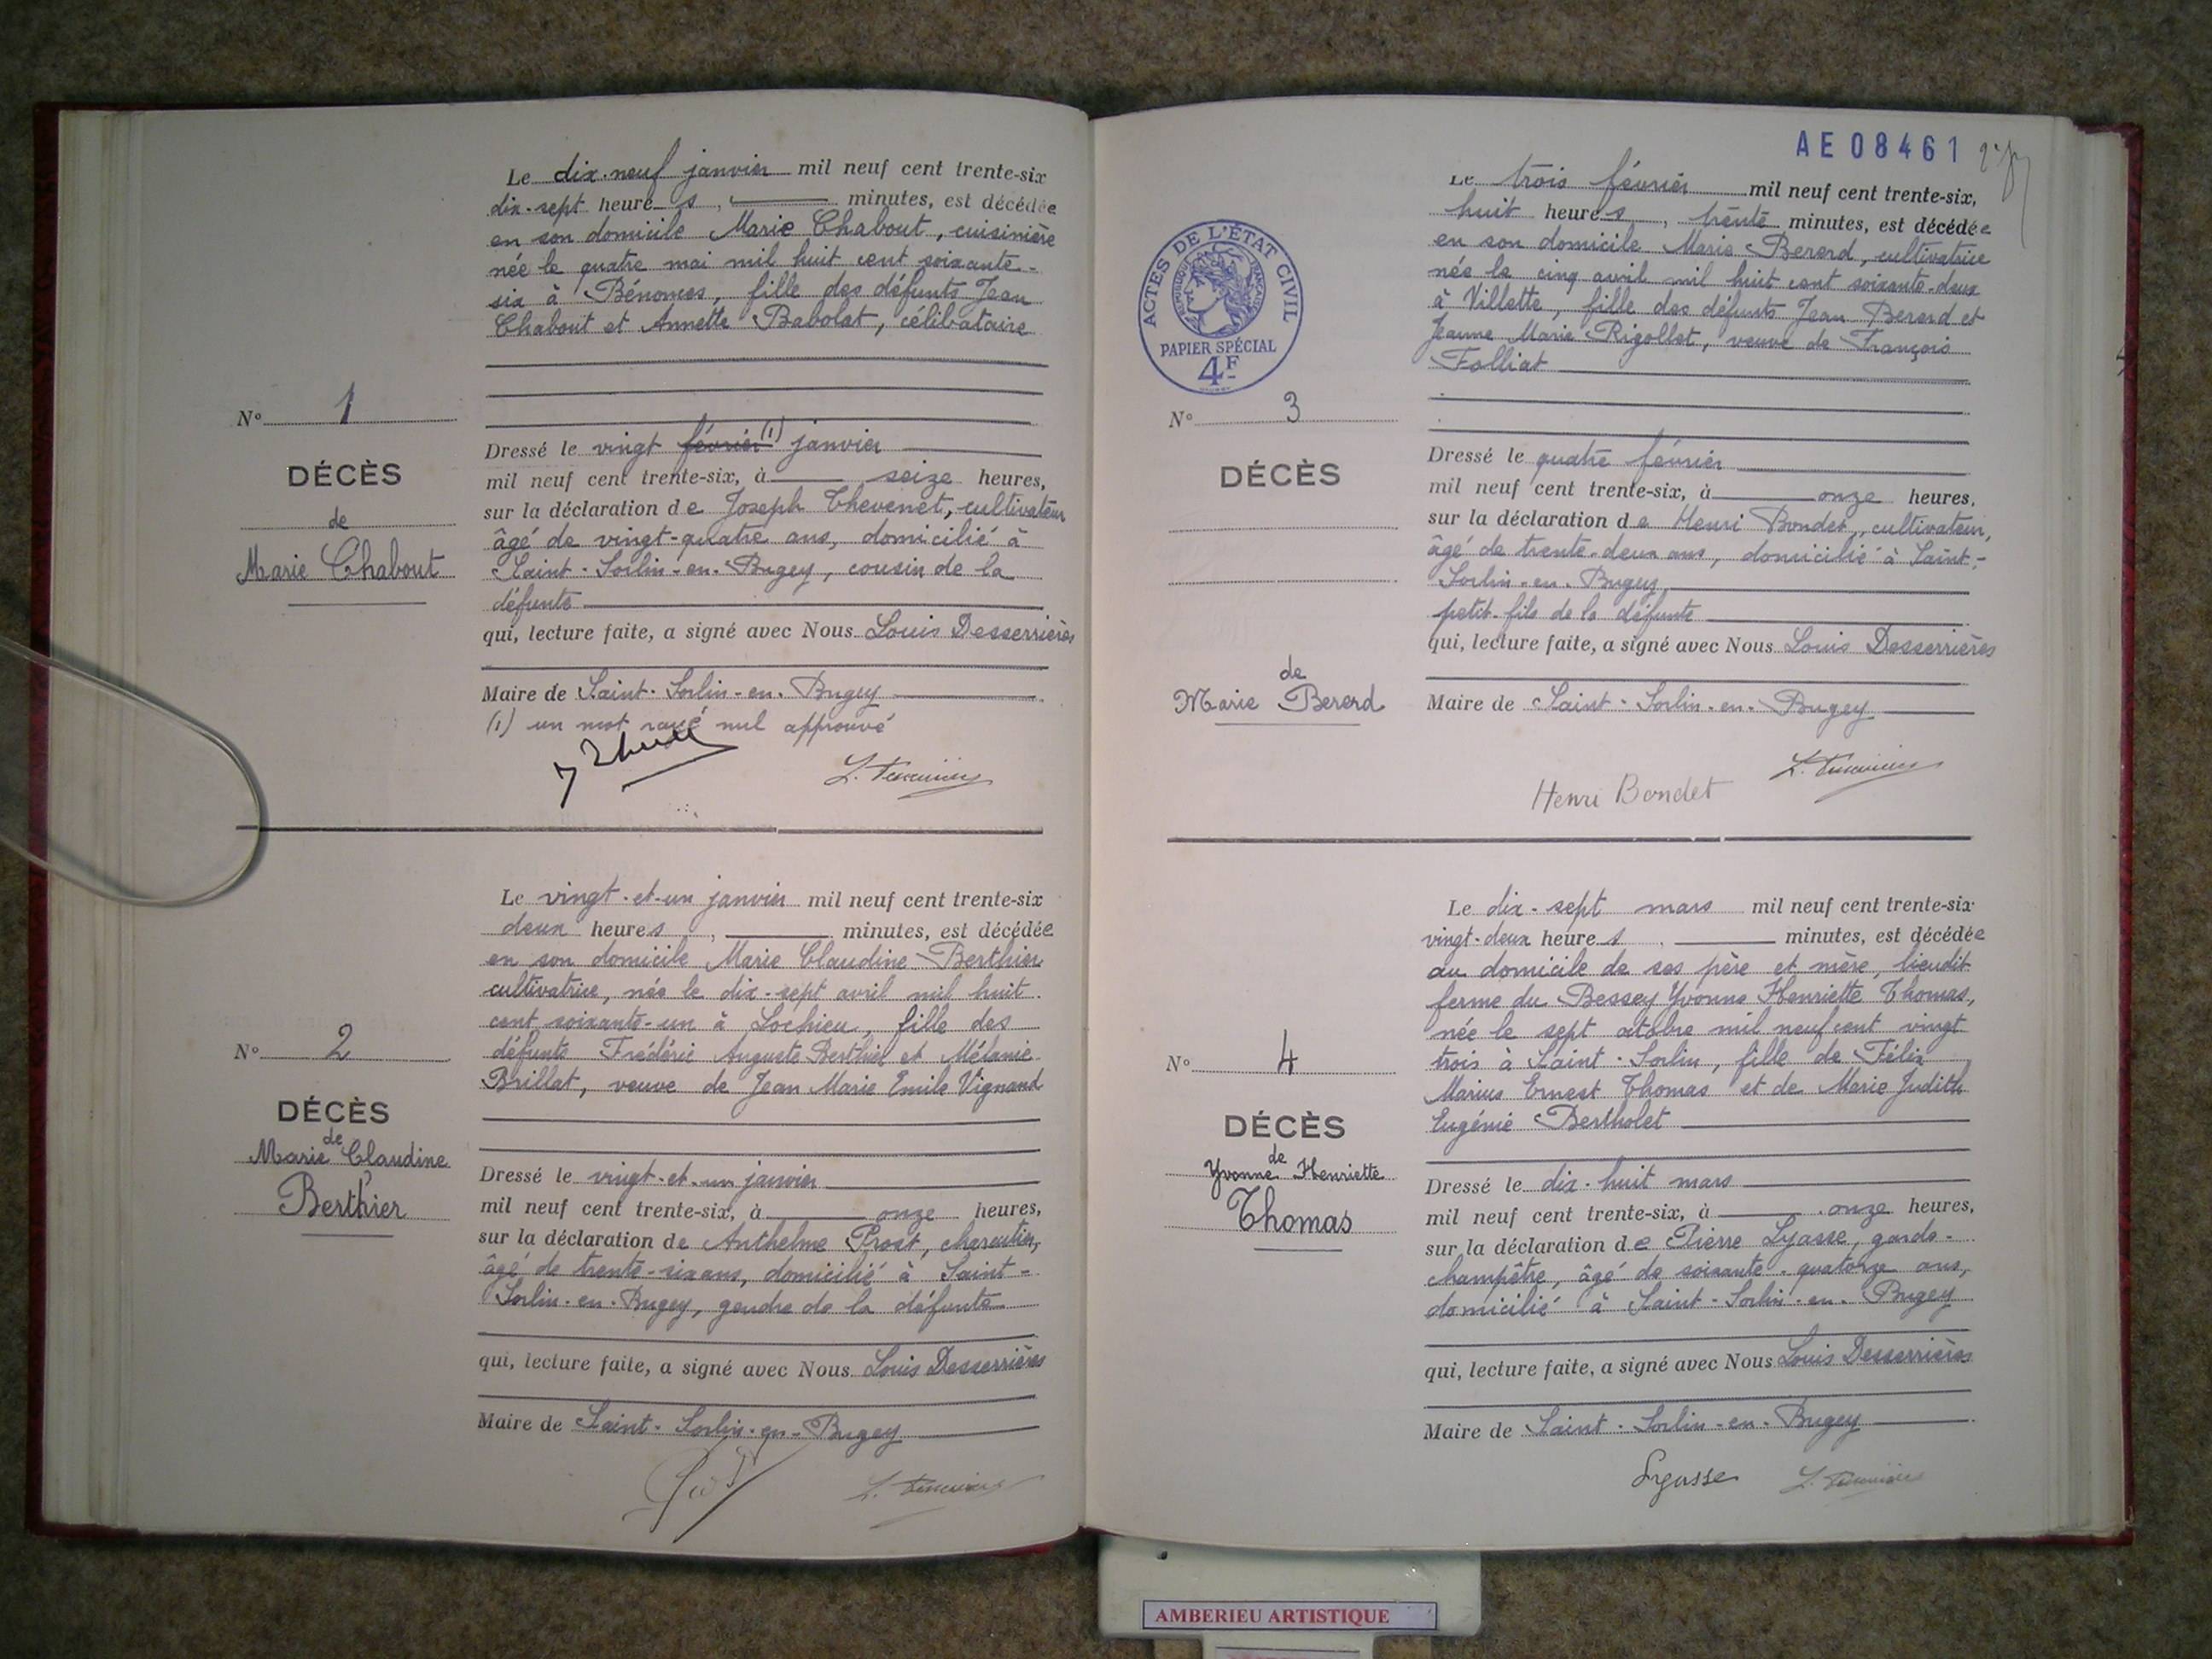 Le dix-neuf janvier mil neuf cent trente-six
dix-sept heures, minutes, est décédée
en son domicile Marie Chabout, cuisinière
née le quatre mai mil huit cent soixante-
six à Bénonces, fille des défunts Jean
Chabout et Annette Babolat, célibataire
N° 1
DÉCÈS
de
Marie Chabout
Dressé le vingt février (1) janvier
mil neuf cent trente-six, à seize heures,
sur la déclaration de Joseph Thevenet, cultivateur
âgé de vingt-quatre ans, domicilié à
Saint-Sorlin-en-Bugey, cousin de la
défunte
qui, lecture faite, a signé avec Nous Louis Desserrières
Maire de Saint-Sorlin-en-Bugey
(1) un mot rayé nul approuvé
Le vingt-et-un janvier mil neuf cent trente-six
deux heures, minutes, est décédée
en son domicile Marie Claudine Berthier
cultivatrice, née le dix-sept avril mil huit
cent soixante-un à Lochieu, fille des
défunts Frédéric Auguste Berthier et Mélanie
Brillat, veuve de Jean Marie Emile Vignand
N° 2
DÉCÈS
de
Marie Claudine
Berthier
Dressé le vingt-et-un janvier
mil neuf cent trente-six, à onze heures,
sur la déclaration de Anthelme Prost, charcutier,
âgé de trente-six ans, domicilié à Saint-
Sorlin-en-Bugey, gendre de la défunte
qui, lecture faite, a signé avec Nous Louis Desserrières
Maire de Saint-Sorlin-en-Bugey
AE 08461
Le trois février mil neuf cent trente-six,
huit heures, trente minutes, est décédée
en son domicile Marie Bererd, cultivatrice
née le cinq avril mil huit cent soixante-deux
à Villette, fille des défunts Jean Bererd et
Jeanne Marie Rigollet, veuve de François
Folliat
ACTES DE L'ÉTAT CIVIL
RÉPUBLIQUE FRANÇAISE
PAPIER SPÉCIAL
4F
N° 3
DÉCÈS
de
Marie Bererd
Dressé le quatre février
mil neuf cent trente-six, à onze heures,
sur la déclaration de Henri Bondet, cultivateur,
âgé de trente-deux ans, domicilié à Saint-
Sorlin-en-Bugey
petit-fils de la défunte
qui, lecture faite, a signé avec Nous Louis Desserrières
Maire de Saint-Sorlin-en-Bugey
Henri Bondet
Le dix-sept mars mil neuf cent trente-six
vingt-deux heures, minutes, est décédée
au domicile de ses père et mère, lieudit
ferme du Bessey Yvonne Henriette Thomas,
née le sept octobre mil neuf cent vingt
trois à Saint-Sorlin, fille de Félix
Marius Ernest Thomas et de Marie Judith
Eugénie Bertholet
N° 4
DÉCÈS
de
Yvonne Henriette
Thomas
Dressé le dix-huit mars
mil neuf cent trente-six, à onze heures,
sur la déclaration de Pierre Lyasse, garde-
champêtre, âgé de soixante-quatorze ans,
domicilié à Saint-Sorlin-en-Bugey
qui, lecture faite, a signé avec Nous Louis Desserrières
Maire de Saint-Sorlin-en-Bugey
Lyasse
AMBERIEU ARTISTIQUE